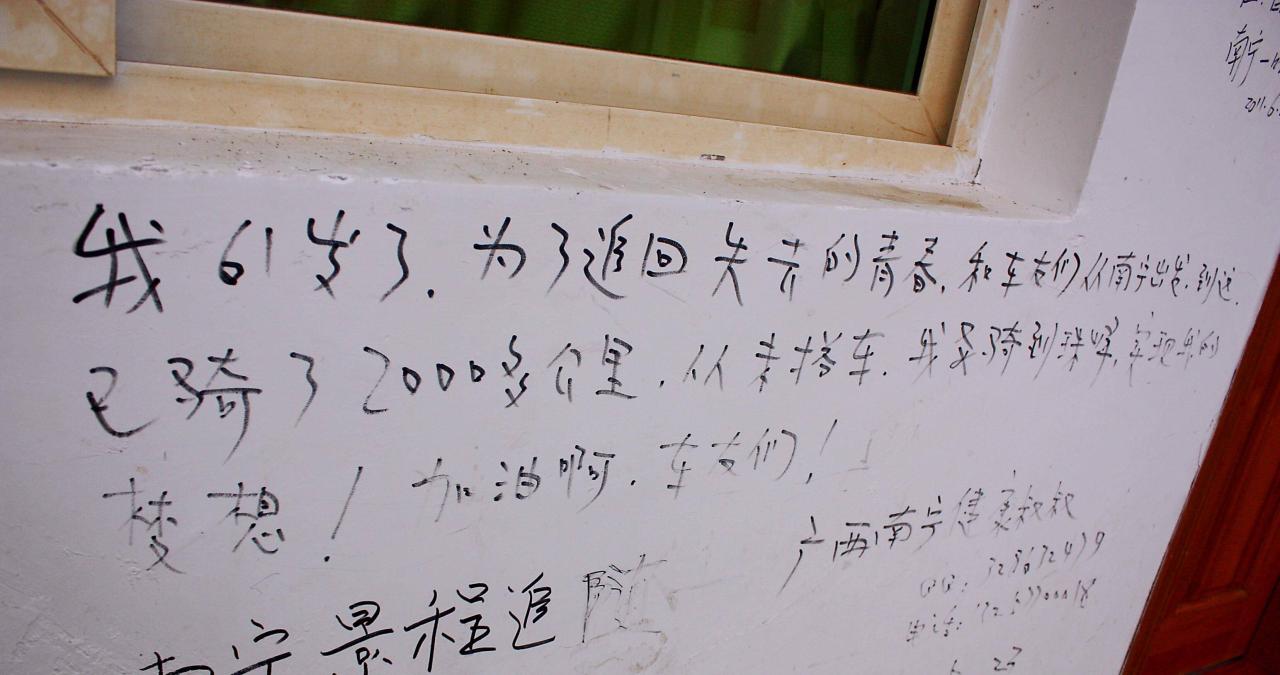 南宁一
2011.6.
我61岁了.为了追回失去的青春.和车友们从南宁出发.到这.
已骑了2000多公里.从未搭车.我要骑到珠峰.实现我的
梦想!加油啊.车友们!
广西南宁健康叔叔
QQ:
电话:
南宁景程追随